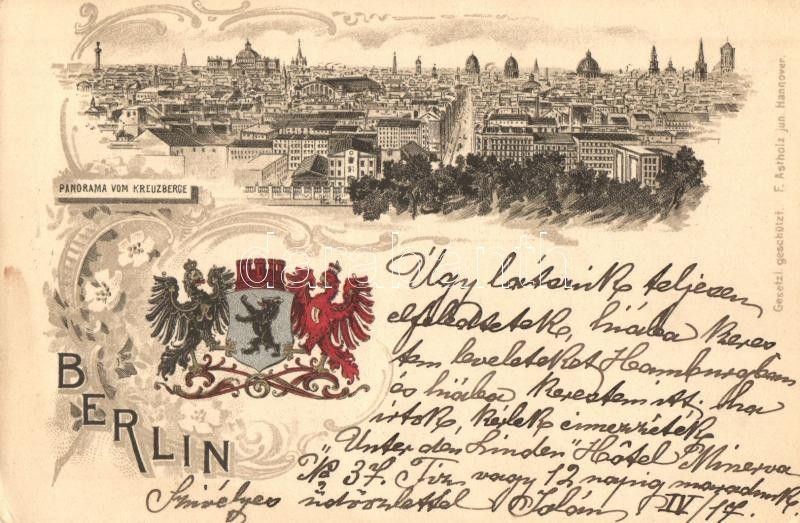 PANORAMA VOM KREUZBERGE
Gesetzl. geschützt. F. Astholz jun. Hannover.
darabanth
BERLIN
Úgy látszik teljesen
elfeledtetek, hiába keres
tem leveleteket Hamburgban
és hiába kerestem itt; ha
irtok, kérlek címezzétek
Unter den Linden" Hôtel Minerva
№ 37. Tiz vagy 12 napig maradunk.
Szivélyes üdvözlettel Jolán IV/17.